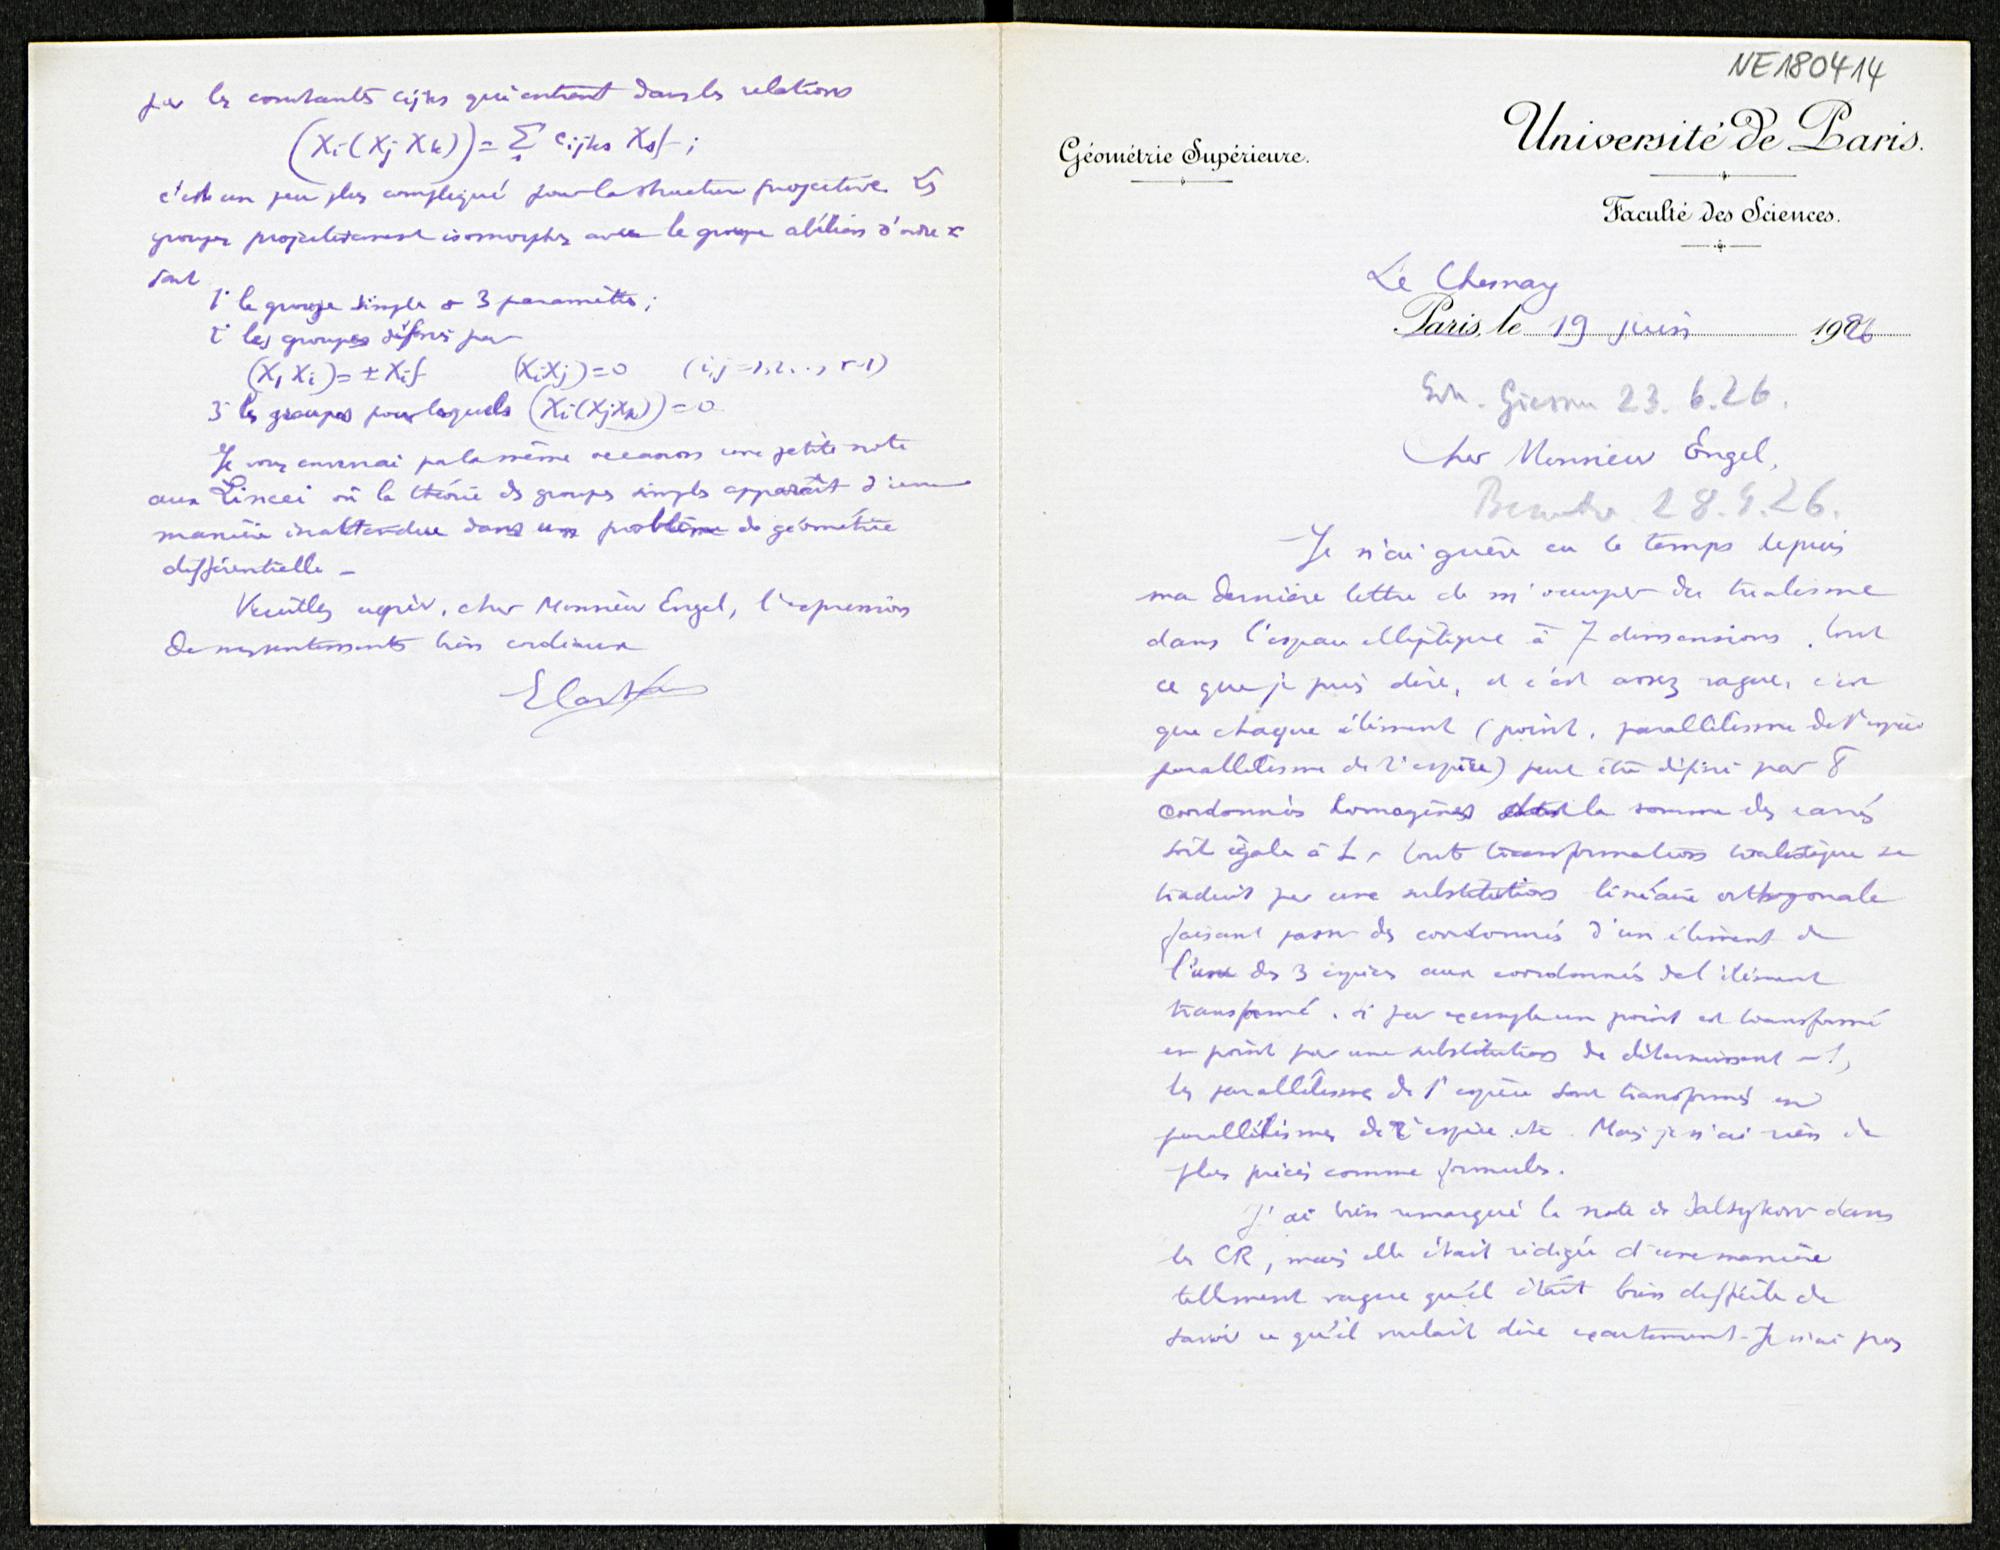 NE180414
Université de Paris.
Géométrie Supérieure.
Faculté des Sciences.
Le Chesnay
Paris, le 19 juin 1926
Erh. Giessen 23. 6. 26.
Cher Monsieur Engel,
28. 9. 26.
Je n'ai guère eu le temps depuis
ma dernière lettre de m'occuper du trialisme
dans l'espace elliptique à 7 dimensions. Tout
ce que je puis dire, et c'est assez vague, c'est
que chaque élément (point, parallélisme de 1e espèce
parallélisme de 2e espèce) peut être défini par 8
coordonnées homogènes dont la somme des carrés
soit égale à 1, toute transformation trialistique se
traduit par une substitution linéaire orthogonale
faisant passer des coordonnées d'un élément de
l'une des 3 espèces aux coordonnées de l'élément
transformé. Si par exemple un point est transformé
en point par une substitution de déterminant -1,
les parallélismes de 1e espèce sont transformés en
parallélismes de 2e espèce etc. Mais je n'ai rien de
plus précis comme formules.
J'ai bien remarqué la note de Saltykow dans
les CR, mais elle était rédigée d'une manière
tellement vague qu'il était bien difficile de
savoir ce qu'il voulait dire exactement. Je n'ai pas
par les constantes cijks qui entrent dans les relations
(Xi(Xj Xk)) = Σs cijks Xsf ;
c'est un peu plus compliqué pour la structure projective. Les
groupes projectivement isomorphes avec le groupe abélien d'ordre r
sont
1° le groupe simple à 3 paramètres ;
2° les groupes définis par
(X1 Xi) = ± Xif (XiXj) = 0 (i,j = 1, 2, .., r-1)
3° les groupes pour lesquels (Xi(XjXk)) = 0.
Je vous enverrai par la même occasion une petite note
aux Lincei où la théorie des groupes simples apparaît d'une
manière inattendue dans un problème de géométrie
différentielle –
Veuillez agréer, cher Monsieur Engel, l'expression
de mes sentiments bien cordiaux
E Cartan